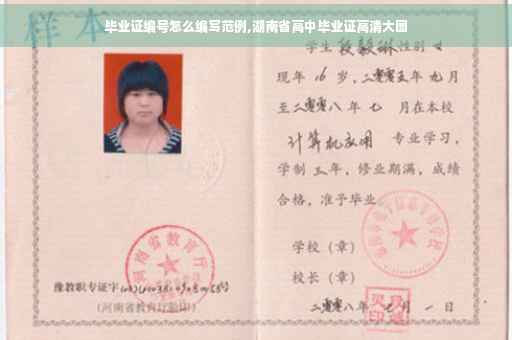 毕业证编号怎么编写范例,湖南省高中毕业证高清大图
样本
学生 段毅琳 性别 女
现年 16 岁,二零零五年九月
至二零零八年七月在本校
计算机应用 专业学习,
学制 三 年,修业期满,成绩
合格,准予毕业
学校(章)
校长(章)
河南省教育厅
豫教职专证字
(河南省教育厅验印)
二零零八年 月 一 日